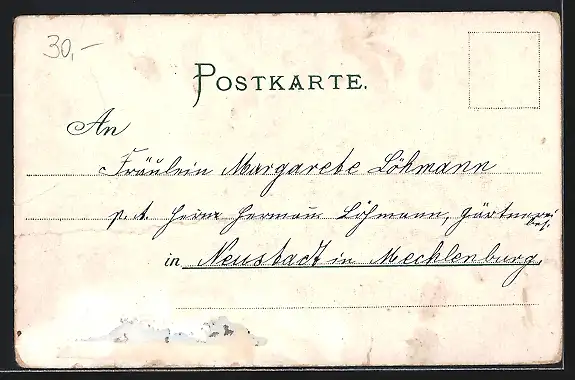 30,-
POSTKARTE.
An
Fräulein Margarete Löhmann
p. A. Herrn Hermann Löhmann, Gärtnerei
bes.
in Neustadt in Mecklenburg